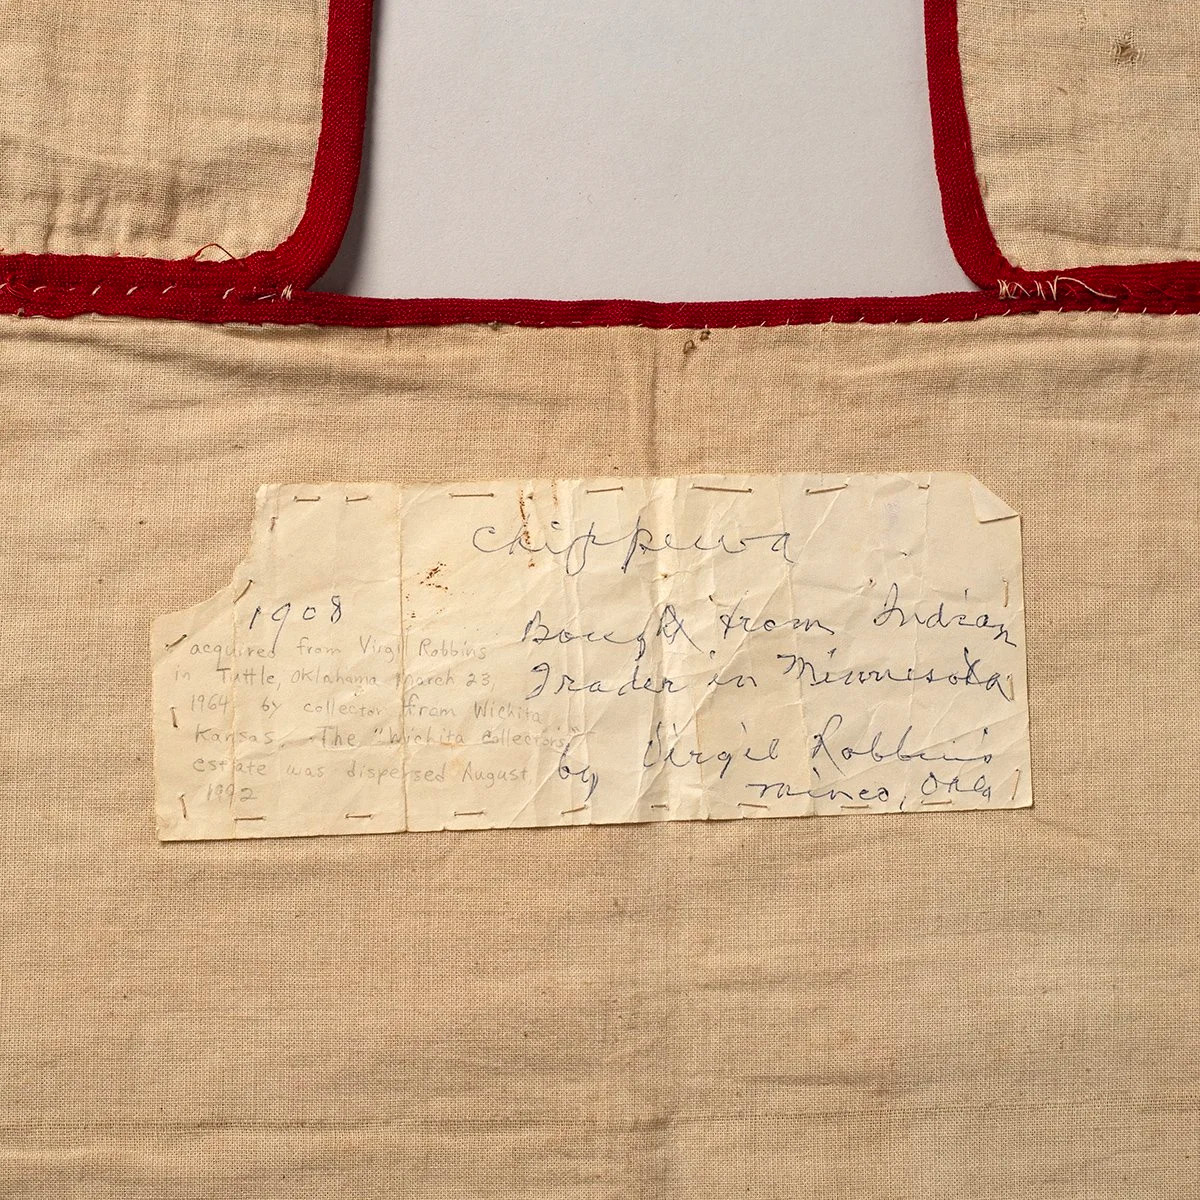 Chippewa
1908
Bought from Indian
Trader in Minnesota
by Virgil Robbins
Minco, Okla
acquired from Virgil Robbins
in Tuttle, Oklahoma March 23,
1964 by collector from Wichita
Kansas. The "Wichita Collector's"
estate was dispersed August
1992